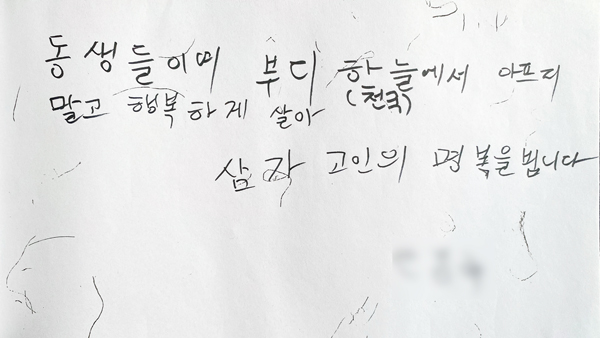 동생들이여 부디 하늘에서 아프지
(천국)
말고 행복하게 살아
삼가 고인의 명복을 빕니다